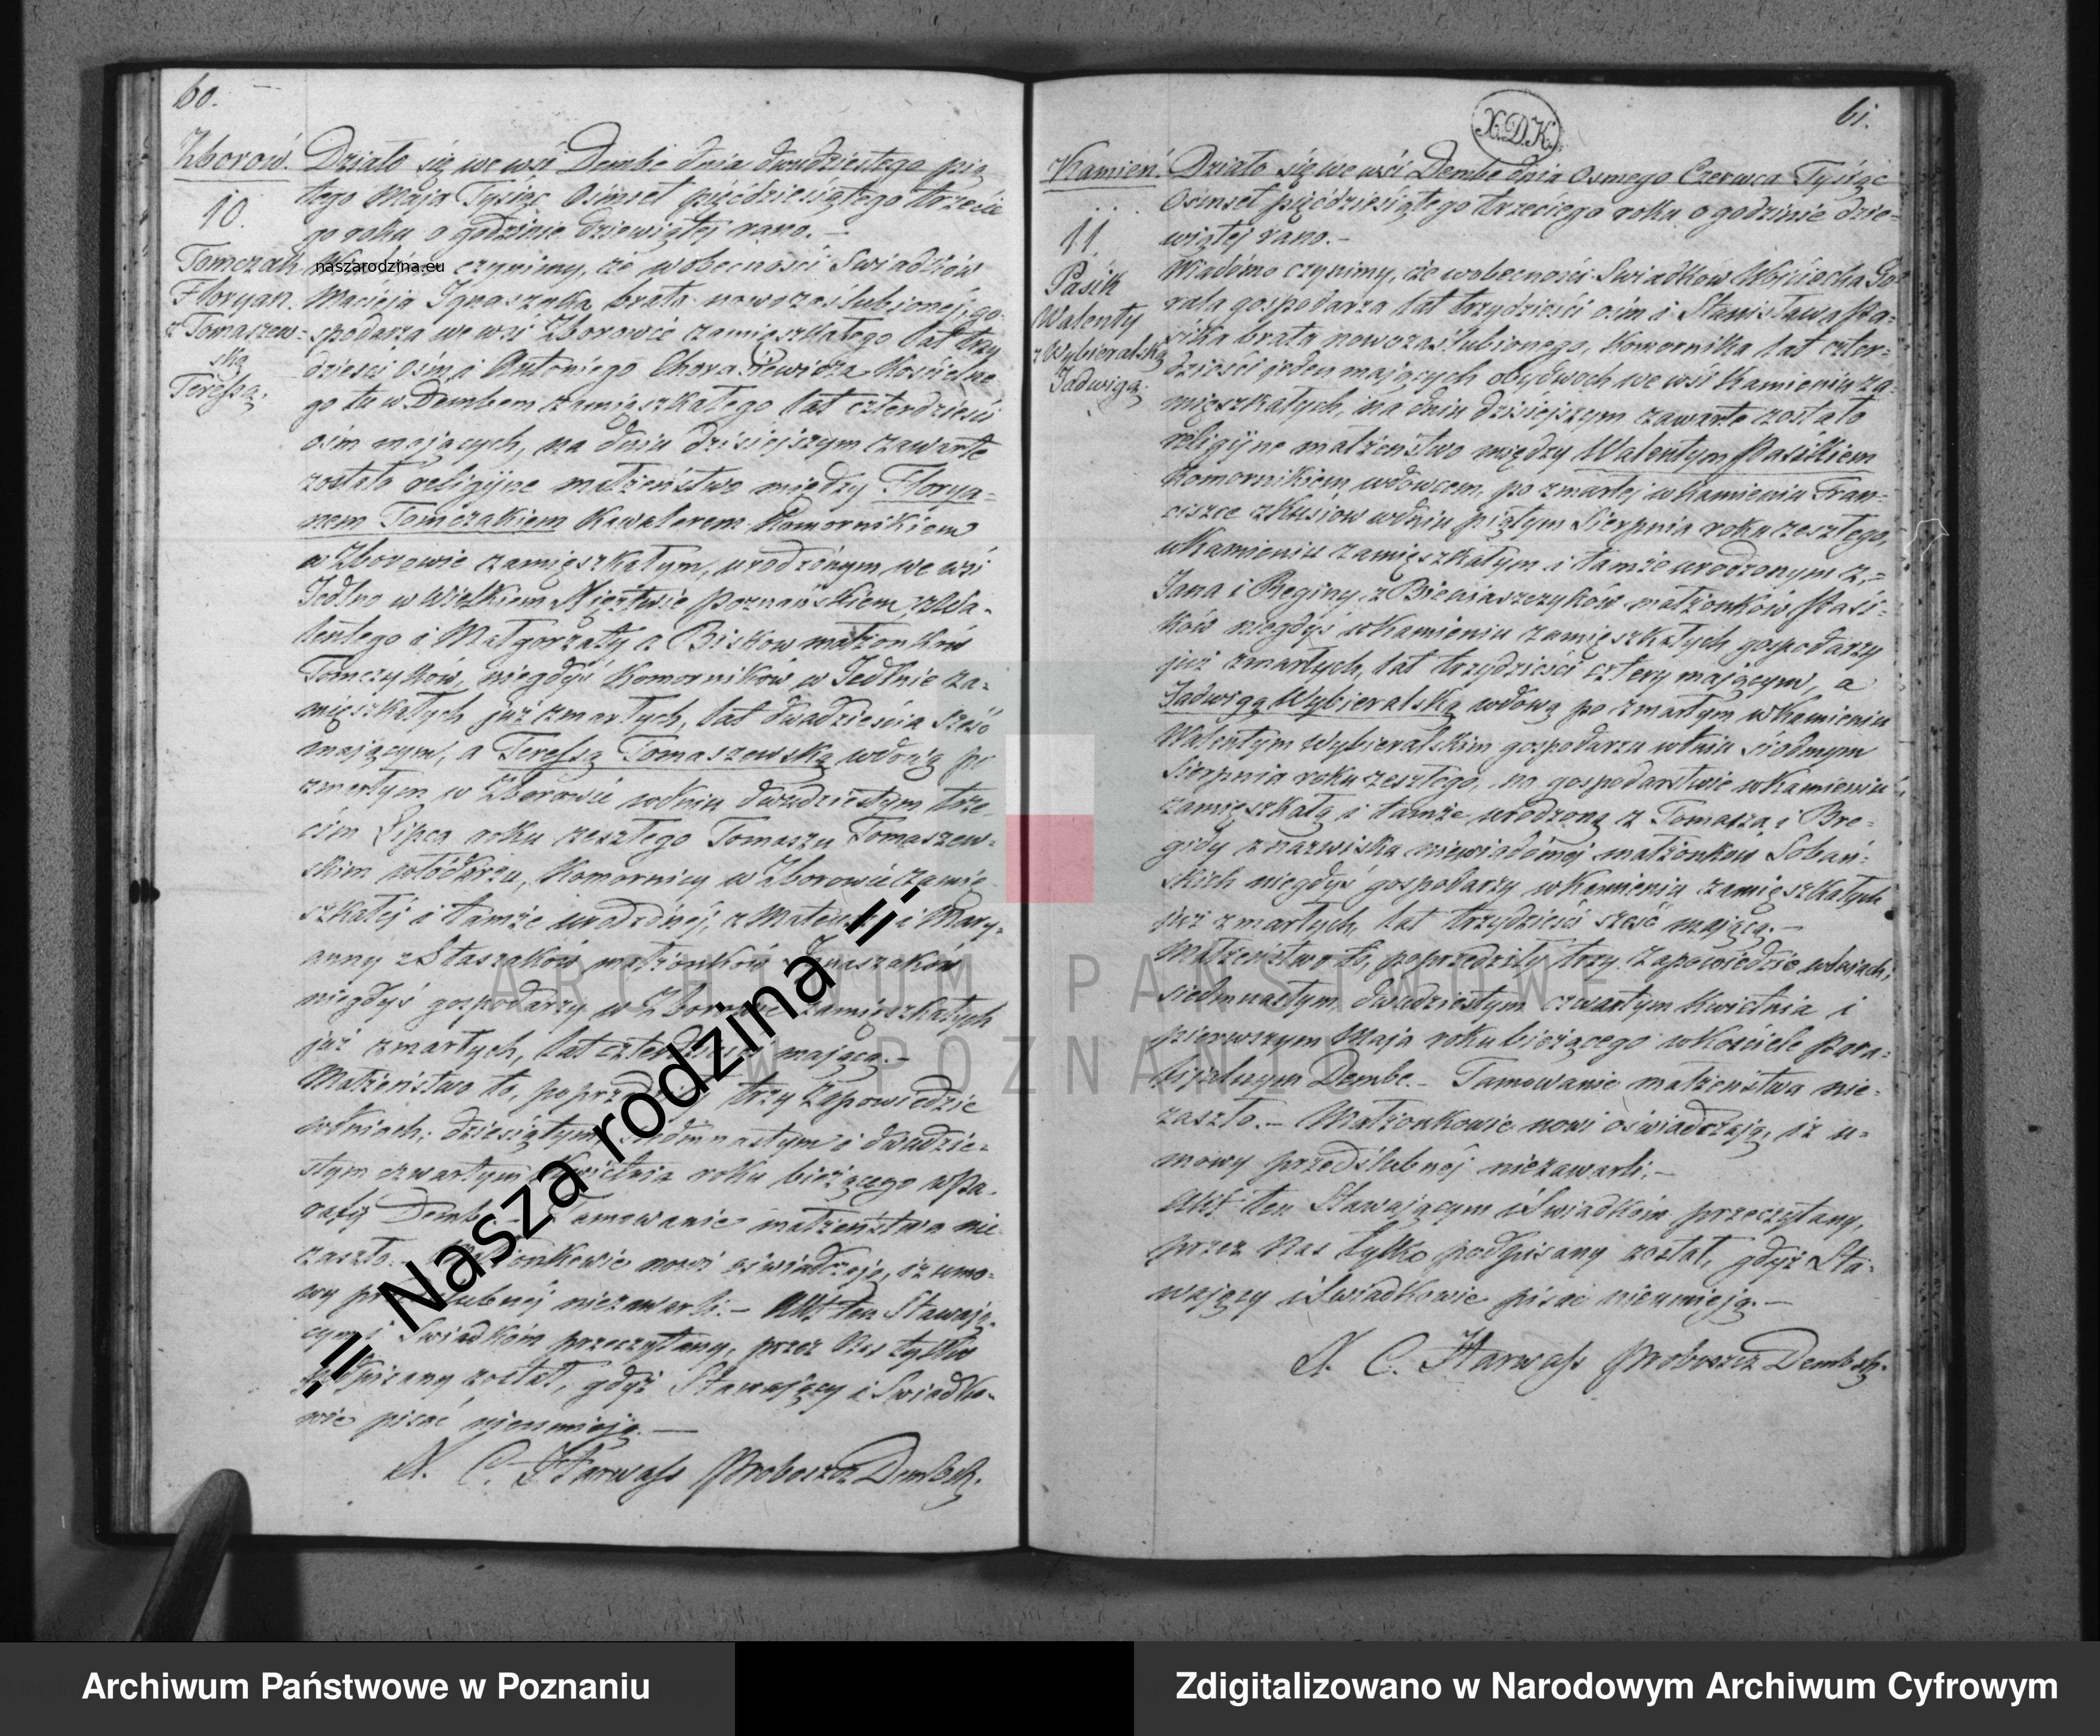 60.
Zborow.
10.
Tomczak
Floryan.
z Tomaszew=
ską
Teressą.
Działo się we wsi Dembe dnia dwudziestego pią
tego Maja Tysiąc Ośmset pięćdziesiątego trzecie
go roku o godzinie dziewiątej rano. –
naszarodzina.eu
czynimy, że wobecności Swiadków
Macieja Ignaszaka brata nowozaślubionej, go=
spodarza we wsi Zborowie zamieszkałego lat trzy
dzieści ośm i Antoniego Kościelne
go tu w Dembem zamięszkałego lat czterdzieści
ośm mających, na dniu dzisiejszym zawarte
zostało religijne małżeństwo między Florya=
nem Tomczakiem Kawalerem Komornikiem
w Zborowie zamięszkałym, urodzonym we wsi
Jedlno w Wielkiem Xięstwie Poznańskiem, z Wa=
lentego i Małgorzaty z Bisków małżonków
Tomczyków, niegdyś Komorników w Jedlnie za=
mięszkałych już zmarłych, lat dwadzieścia sześć
mającym, a Teressą Tomaszewską wdową po
zmarłym w Zborowie wdniu dwudziestym trze
cim Lipca roku zeszłego Tomaszu Tomaszew=
skim włodarzu, Komornicy w Zborowie zamię
szkałej i tamże urodzonej, z i Mary=
anny z Staszaków małżonków Ignaszaków
niegdyś gospodarzy w Zborowie zamięszkałych
już zmarłych, lat mającą. –
Małżeństwo to, trzy Zapowiedzie
wdniach: dziesiątym, siedmnastym i dwudzie=
stym czwartym Kwietnia roku bieżącego w Pa=
rafij Dembe – Tamowanie małżeństwa nie
zaszło. – Małżonkowie nowi oświadczają, iż umo=
wy przedślubnej niezawarli. – Akt ten Stawają=
cym i Swiadkom przeczytany, przez Nas tylko
podpisany został, gdyż Stawający i Swiadko=
wie pisać nieumieją. –
X. C. Harwass Proboszcz Dembsk.
= Nasza rodzina =
61.
X.D.K.
Kamień.
11.
Pasik
Walenty
z Wybieralską
Jadwigą.
Działo się we wsi Dembe dnia Osmego Czerwca Tysiąc
Osmset pięćdziesiątego trzeciego roku o godzinie dzie=
wiątej rano. –
Wiadomo czynimy, że wobecności Swiadków Woyciecha Go=
rala gospodarza lat trzydzieści ośm i Stanisława Pa=
sika brata nowozaślubionego, Komornika lat czter=
dzieści jeden mających obydwóch we wsi Kamieniu za=
mięszkałych, na dniu dzisiejszym zawarte zostało
religijne małżeństwo między Walentym Pasikiem
Komornikiem wdowcem, po zmarłej w Kamieniu Fran=
ciszce z Kusiów wdniu piątym Sierpnia roku zeszłego,
w Kamieniu zamięszkałym i tamże urodzonym z,=
Jana i Reginy z Bieniaszczyków małżonków Pasi=
ków niegdyś w Kamieniu zamięszkałych gospodarzy
już zmarłych, lat trzydzieści cztery mającym, a
Jadwigą Wybieralską wdową po zmarłym w Kamieniu
Walentym Wybieralskim gospodarzu wdniu siódmym
Sierpnia roku zeszłego, na gospodarstwie w Kamieniu
zamięszkałą i tamże urodzoną z Tomasza i Bry=
gidy z nazwiska niewiadomej małżonków Sobań=
skich niegdyś gospodarzy w Kamieniu zamięszkałych
już zmarłych, lat trzydzieści sześć mającą. –
Małżeństwo to, poprzedziły trzy Zapowiedzie wdniach:
siedmnastym, dwudziestym czwartym Kwietnia i
pierwszym Maja roku bieżącego w Kościele Para=
fijalnym Dembe. – Tamowanie małżeństwa nie=
zaszło. – Małżonkowie nowi oświadczają, iż u=
mowy przedślubnéj niezawarli. –
Akt ten Stawającym i Swiadkom przeczytany,
przez Nas tylko podpisany został, gdyż Sta=
wający i Swiadkowie pisać nieumieją. –
X. C. Harwass Proboszcz Dembsk.
ARCHIWUM PAŃSTWOWE
W POZNANIU
Archiwum Państwowe w Poznaniu
Zdigitalizowano w Narodowym Archiwum Cyfrowym